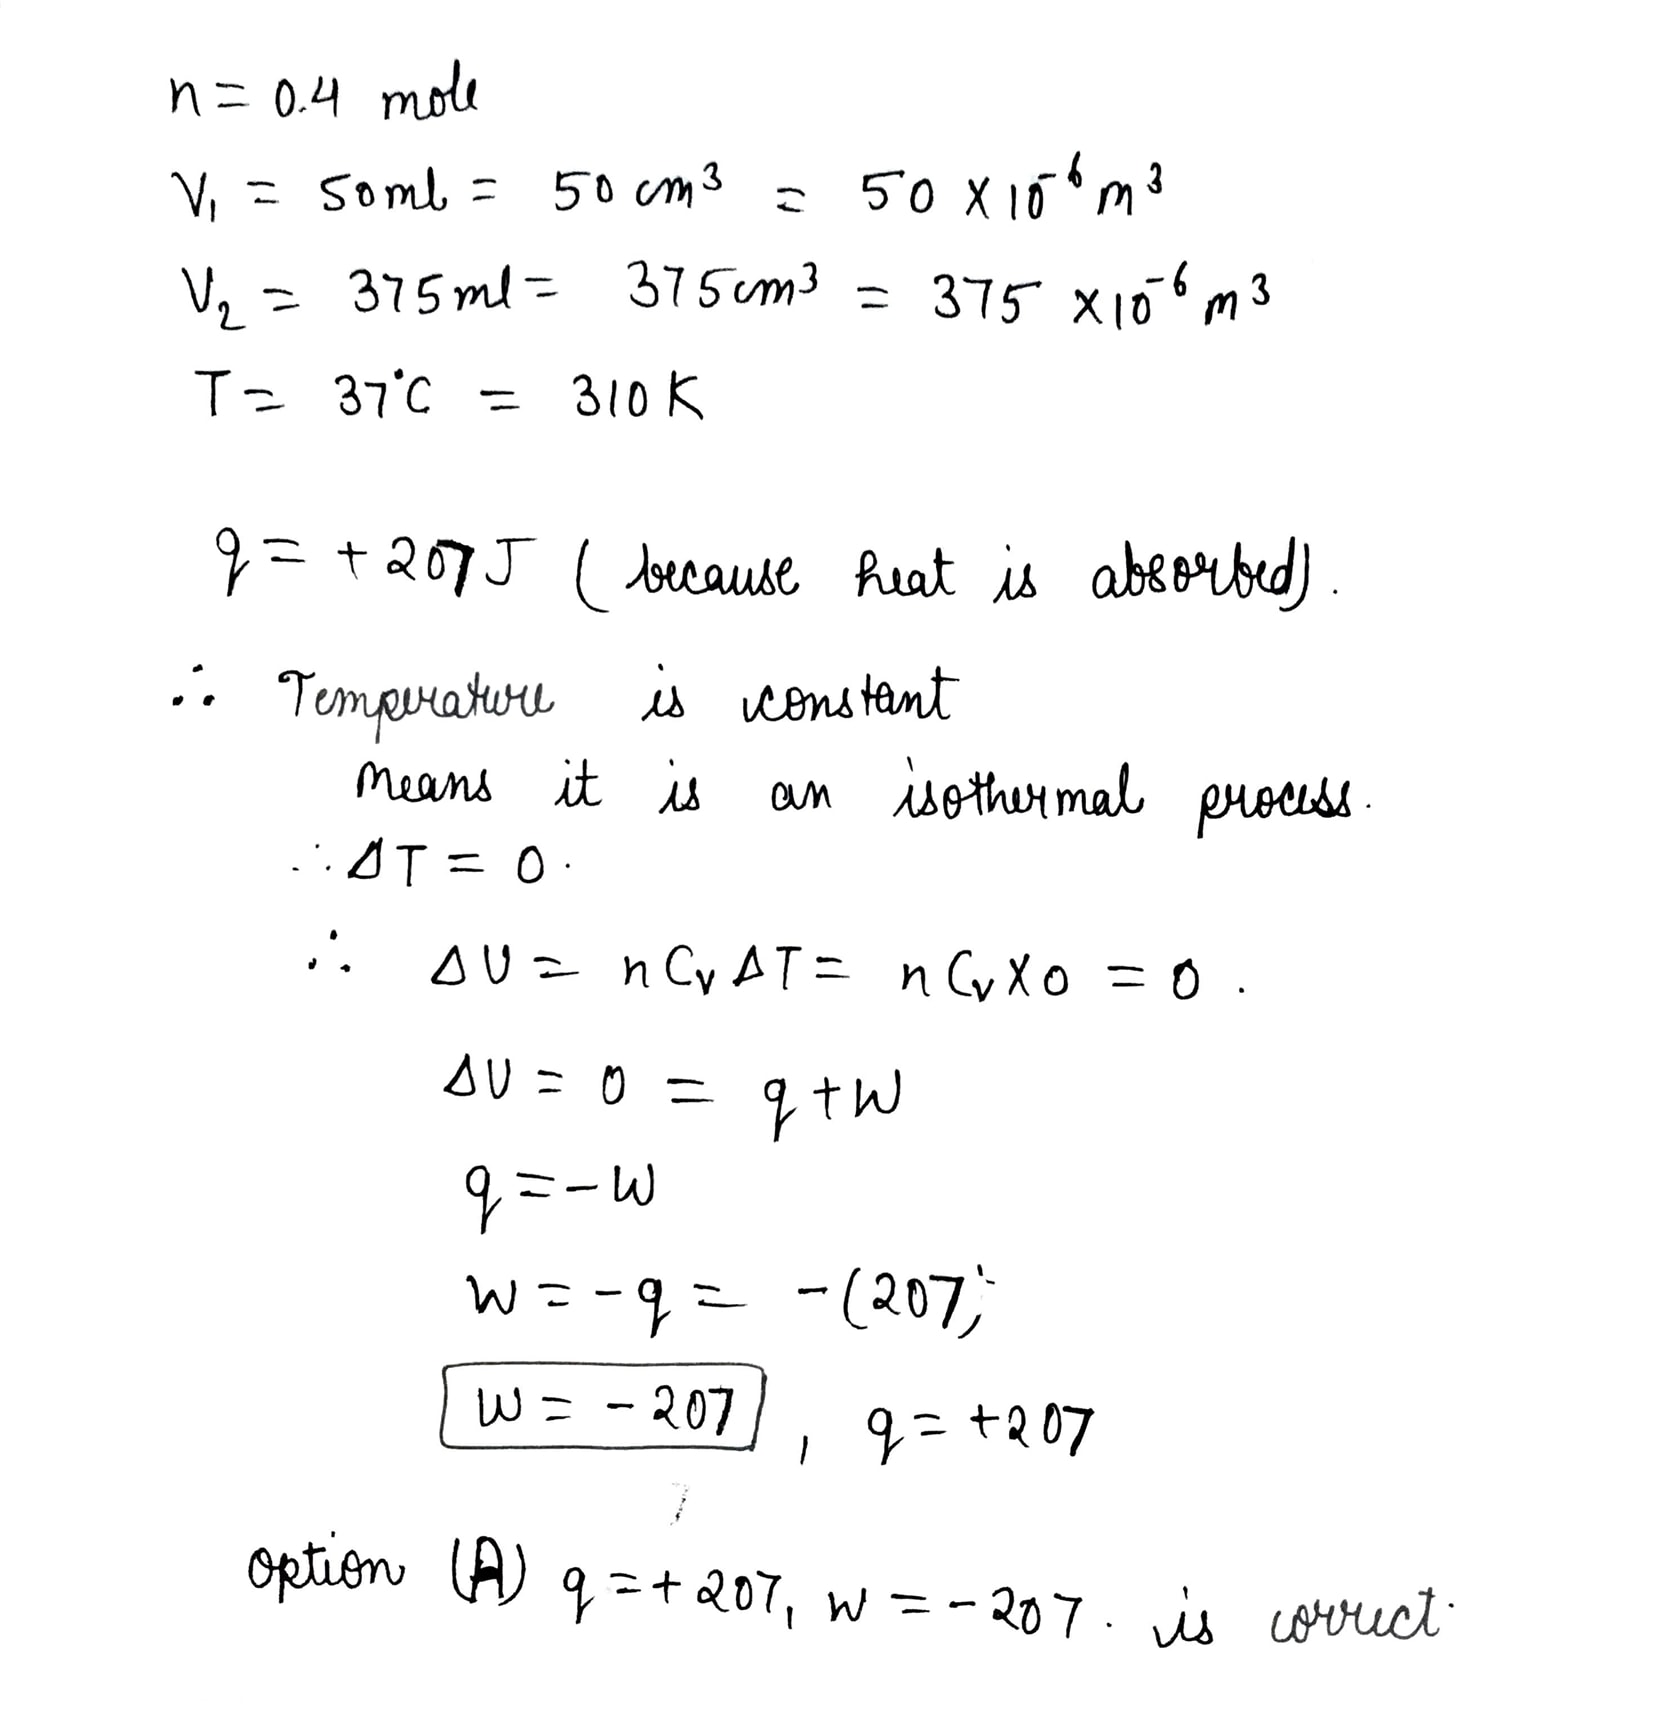 n = 0.4 mole
V₁ = 50ml = 50 cm³ = 50 × 10⁻⁶ m³
V₂ = 375ml = 375cm³ = 375 × 10⁻⁶ m³
T = 37°C = 310 K
q = + 207 J ( because heat is absorbed).
∴ Temperature is constant
means it is an isothermal process.
∴ ΔT = 0.
∴ ΔU = nCvΔT = nCv×0 = 0.
ΔU = 0 = q + W
q = - W
W = - q = - (207)
W = - 207 , q = + 207
option (A) q = + 207, w = - 207. is correct.